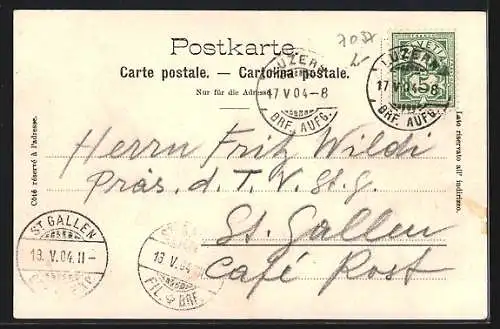 Postkarte.
Carte postale. — Cartolina postale.
Nur für die Adresse.
HELVETIA
5
LUZERN
17 V 04 - 8
BRF. AUFG.
LUZERN
17 V 04 - 8
BRF. AUFG.
Herrn Fritz Wildi
Präs. d. T. V. St. G.
St. Gallen
Café Post
ST. GALLEN
13. V. 04. 11 -
ST. GALLEN
13 V. 04
FIL. BRF.
Côté réservé à l'adresse.
Lato riservato all' indirizzo.